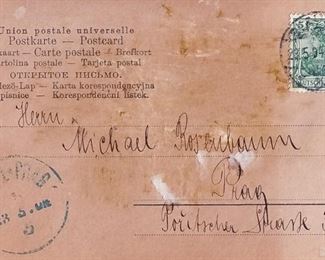 Union postale universelle
Postkarte — Postcard
kaart — Carte postale — Brefkort
artolina postale — Tarjeta postal
ОТКРЫТОЕ ПИСЬМО.
dező-Lap — Karta korespondencyjna
pisnice — Korespondenční lístek.
Herrn
Michael Rosenbaum
Prag
Pořitscher